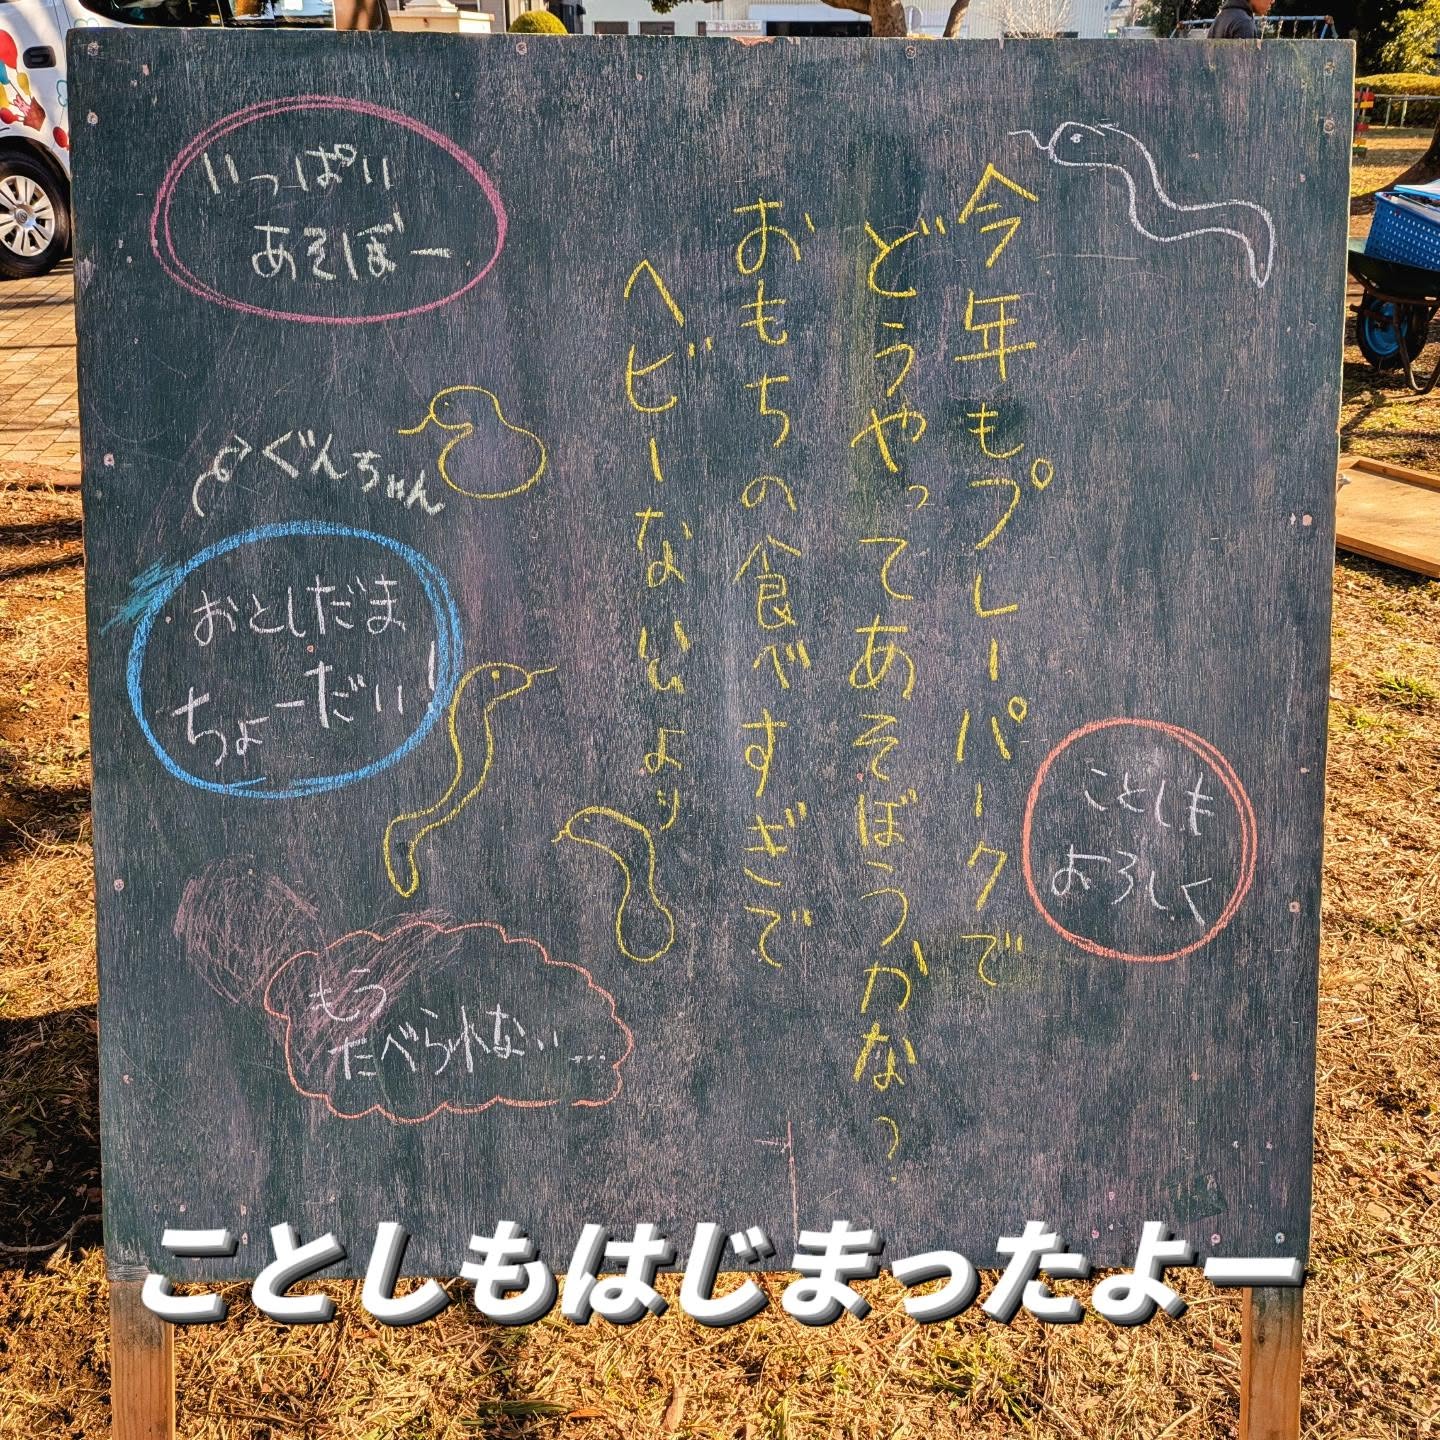 今年もプレーパークで
どうやってあそぼうかな?
おもちの食べすぎで
ヘビーなヘびよッ
ことしも
よろしく
いっぱい
あそぼー
ぐんちゃん
おとしだま
ちょーだい!
もう
たべられない…
ことしもはじまったよー